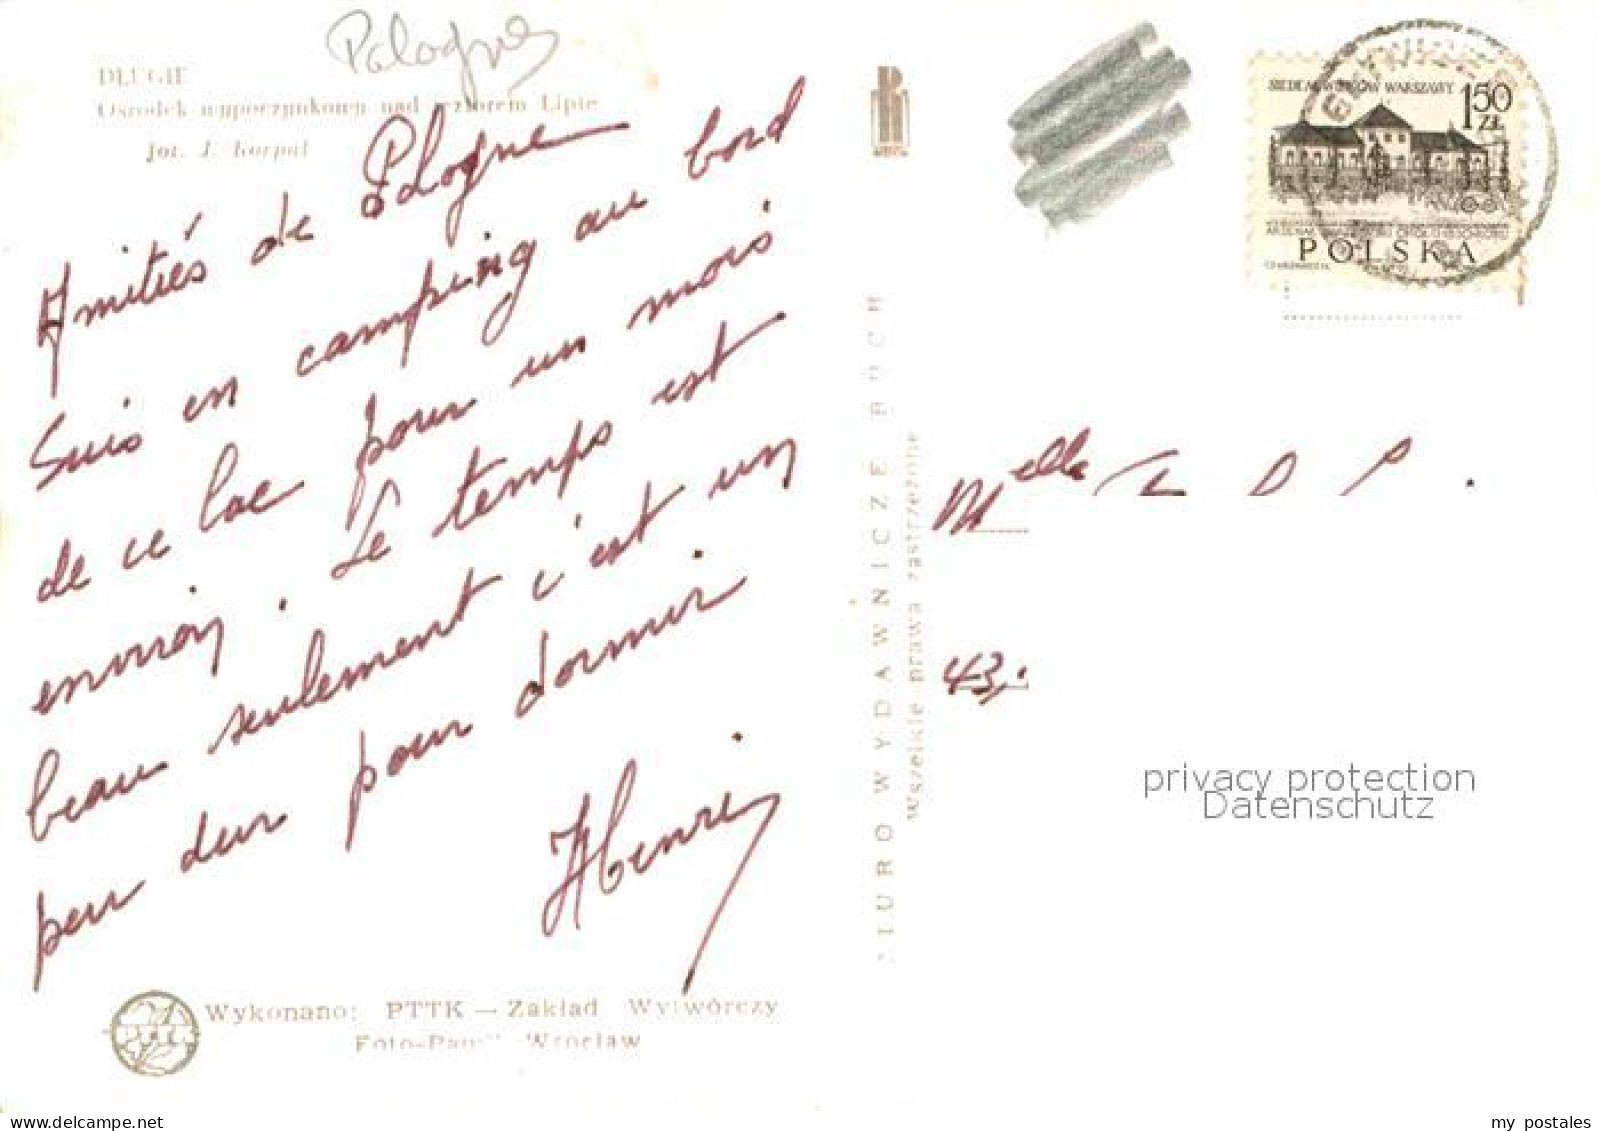 Pologne
DŁUGIE
Ośrodek wypoczynkowy nad jeziorem Lipie
fot. J. Korpal
Amitiés de Pologne
Suis en camping au bord
de ce lac pour un mois
environ. Le temps est
beau seulement c'est un
peu dur pour dormir
Henri
Wykonano: PTTK — Zakład Wytwórczy
Foto-Pam" Wrocław
BIURO WYDAWNICZE RUCH
Wszelkie prawa zastrzeżone
SIEDEM WIEKÓW WARSZAWY
1,50 ZŁ
POLSKA
Melle
43,
privacy protection
Datenschutz
my postales